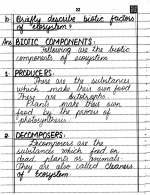 22
b. Briefly describe biotic factors
of ecosystem?
Ans. BIOTIC COMPONENTS:
Following are the biotic
components of ecosystem
1. PRODUCERS:
These are the substances
which make their own food
They are autotrophs.
Plants make their own
food by the process of
"photosynthesis"
2. DECOMPOSERS:
Decomposers are the
substances which feed on
dead plants or animals.
They are also called Cleaners
of Ecosystem.